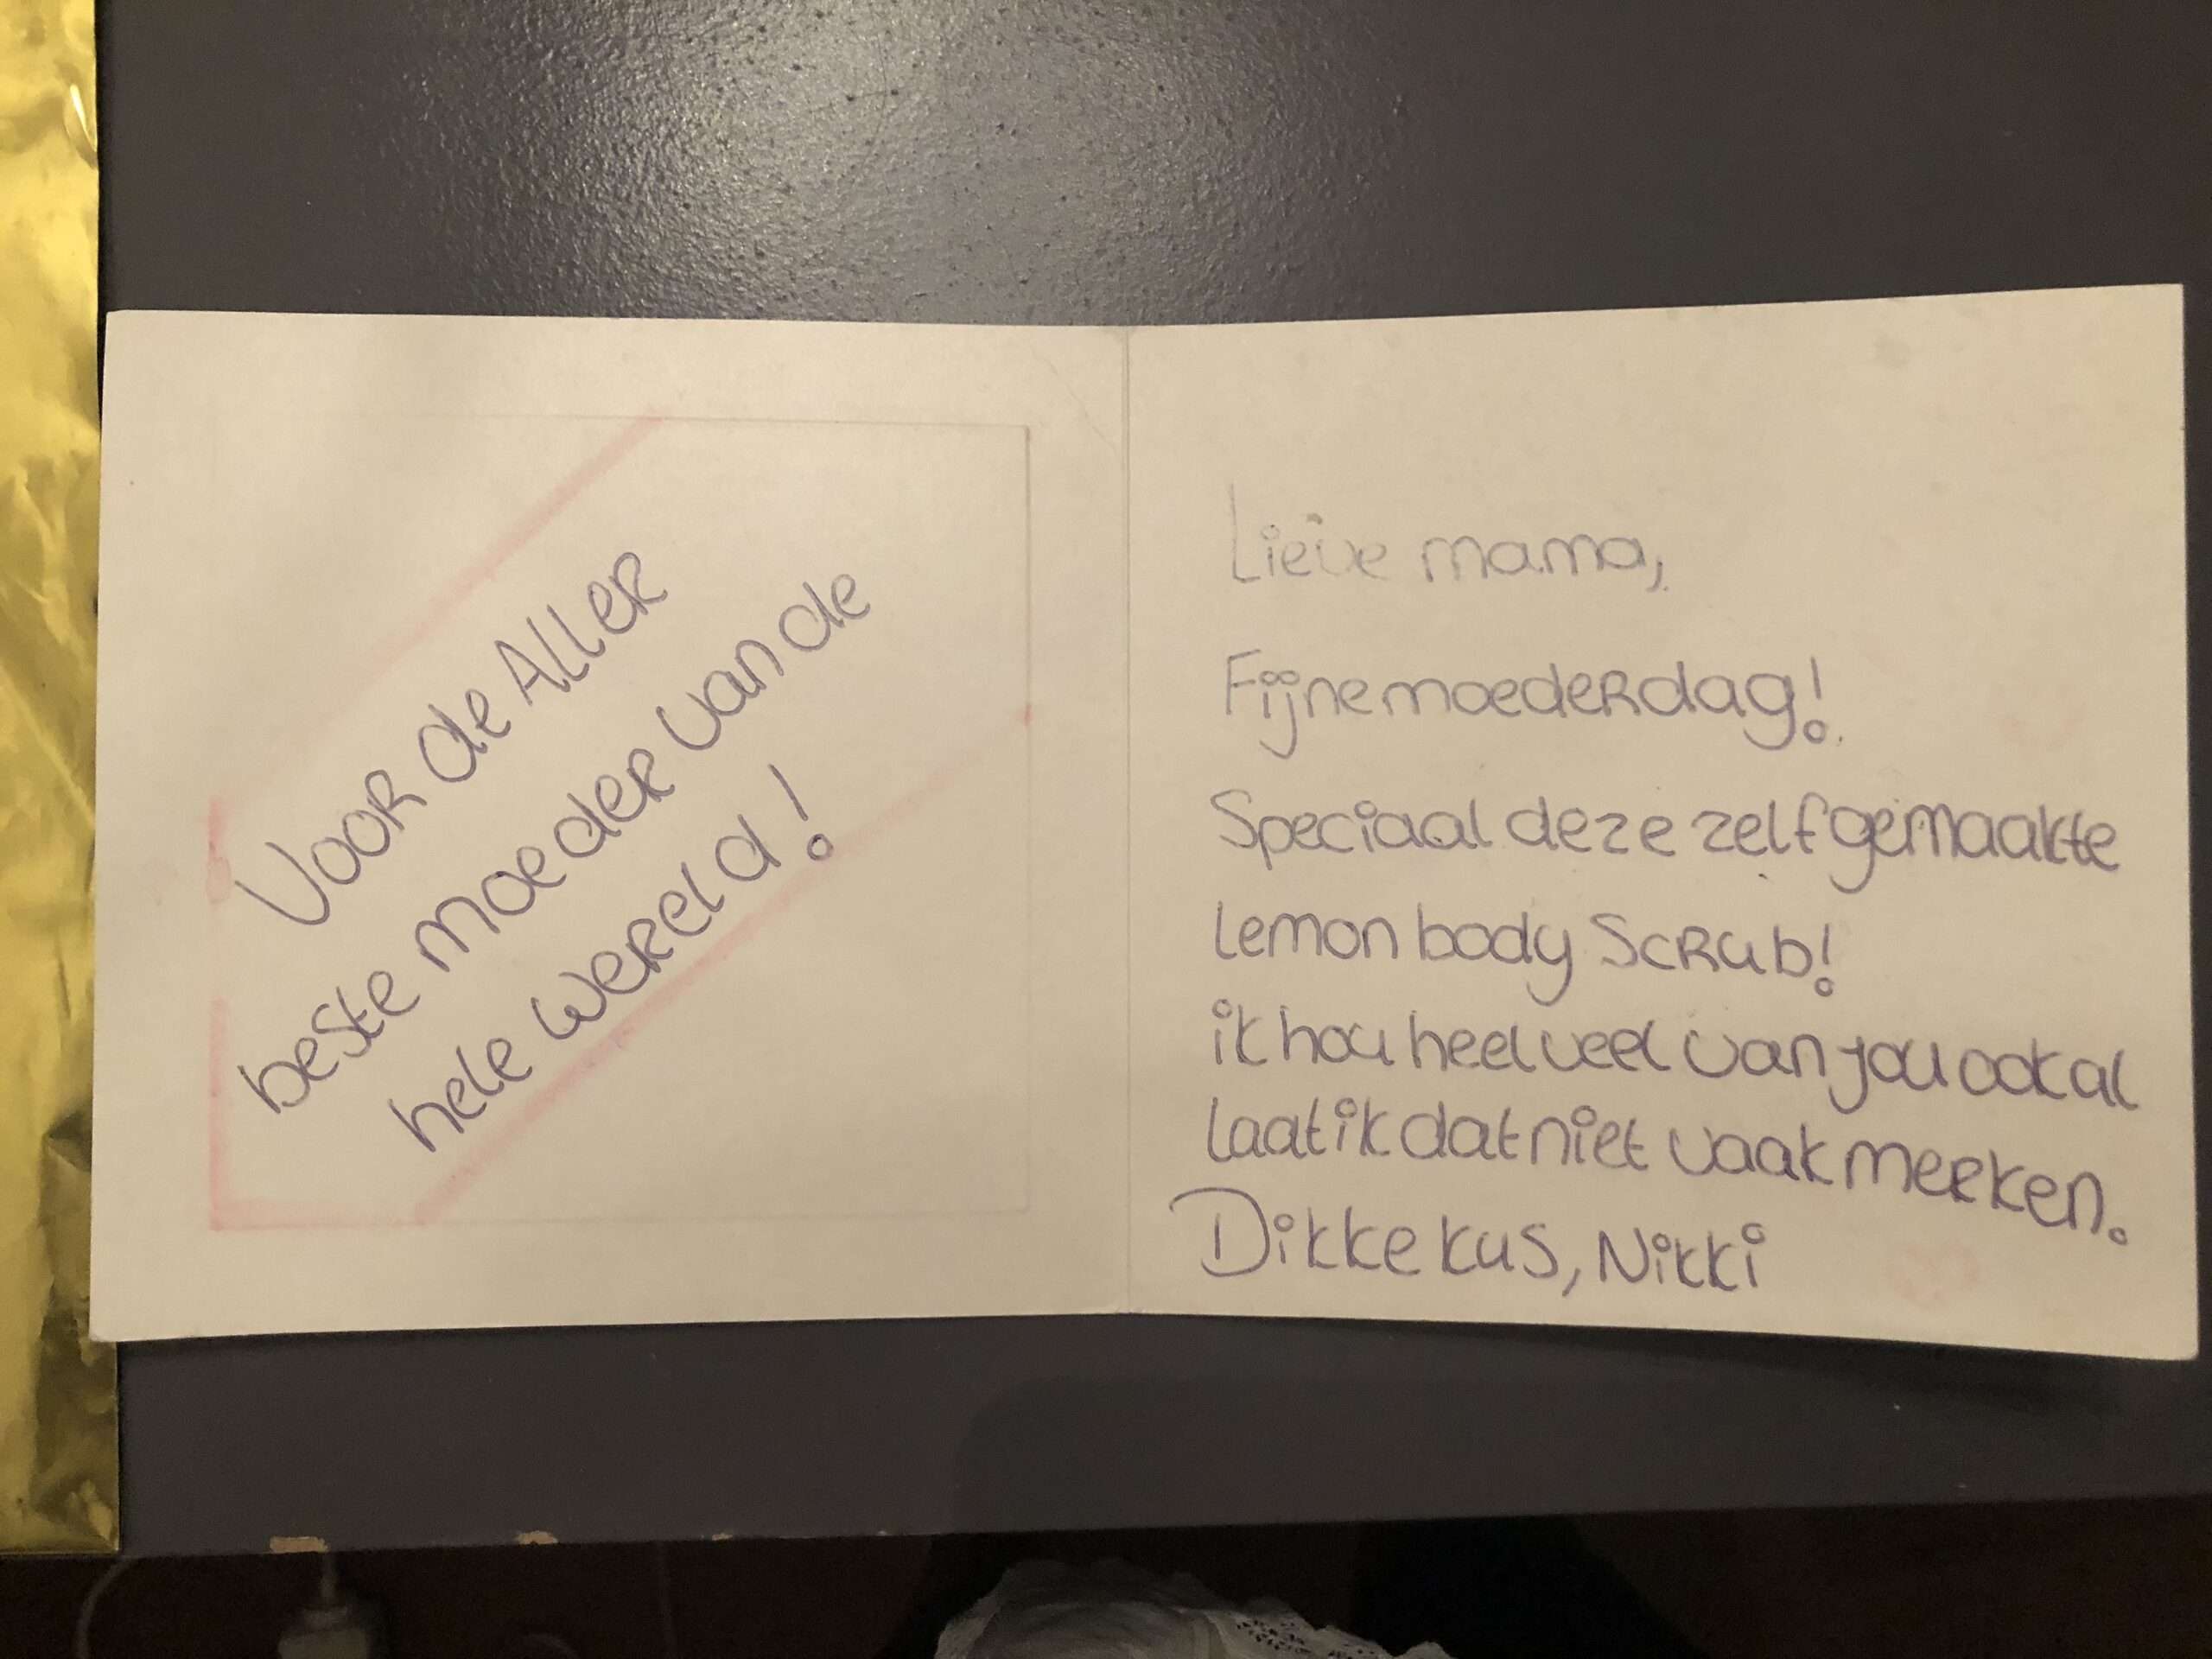 Voor de Aller
beste moeder van de
hele wereld!
Lieve mama,
Fijne moederdag!
Speciaal deze zelfgemaakte
lemon body scrub!
ik hou heel veel van jou ook al
laat ik dat niet vaak merken.
Dikke kus, Nikki